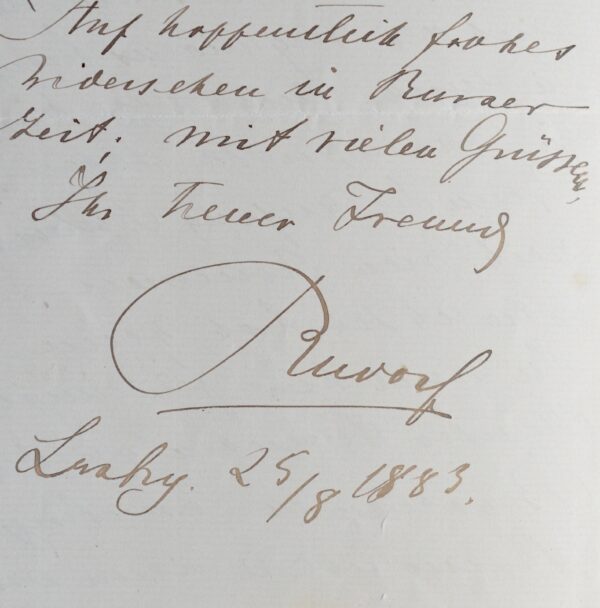 Auf hoffentlich frohes
Widersehen in Kurzer
Zeit; mit vielen Grüssen,
Ihr treuer Freund
Rudolf
25/8 1883.